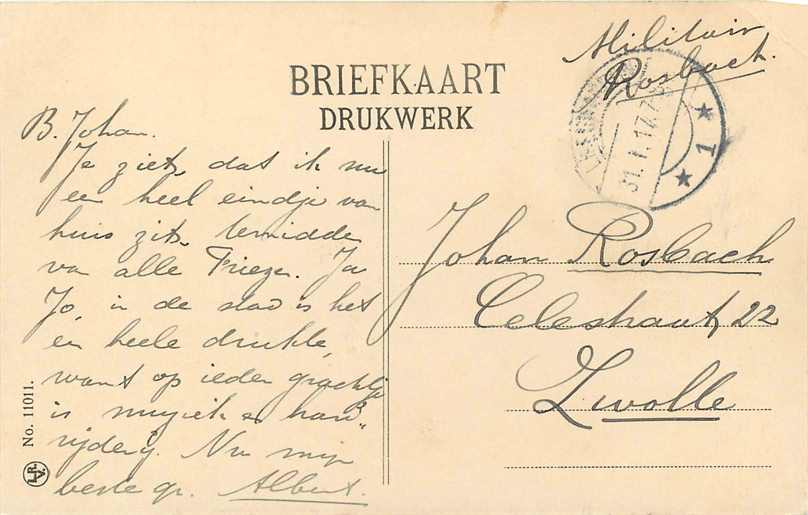 Militair
Rosbach.
BRIEFKAART
DRUKWERK
31.1.17.7
1
B. Johan.
Je ziet dat ik nu
een heel eindje van
huis zit, temidden
van alle Friezen. Ja
Jo, in de stad is het
en heele drukte,
want op ieder grachtje
is muziek en hard
rijderij. Nu mijn
beste gr. Albert.
Johan Rosbach
Celestraat, 22
Zwolle
No. 11011.